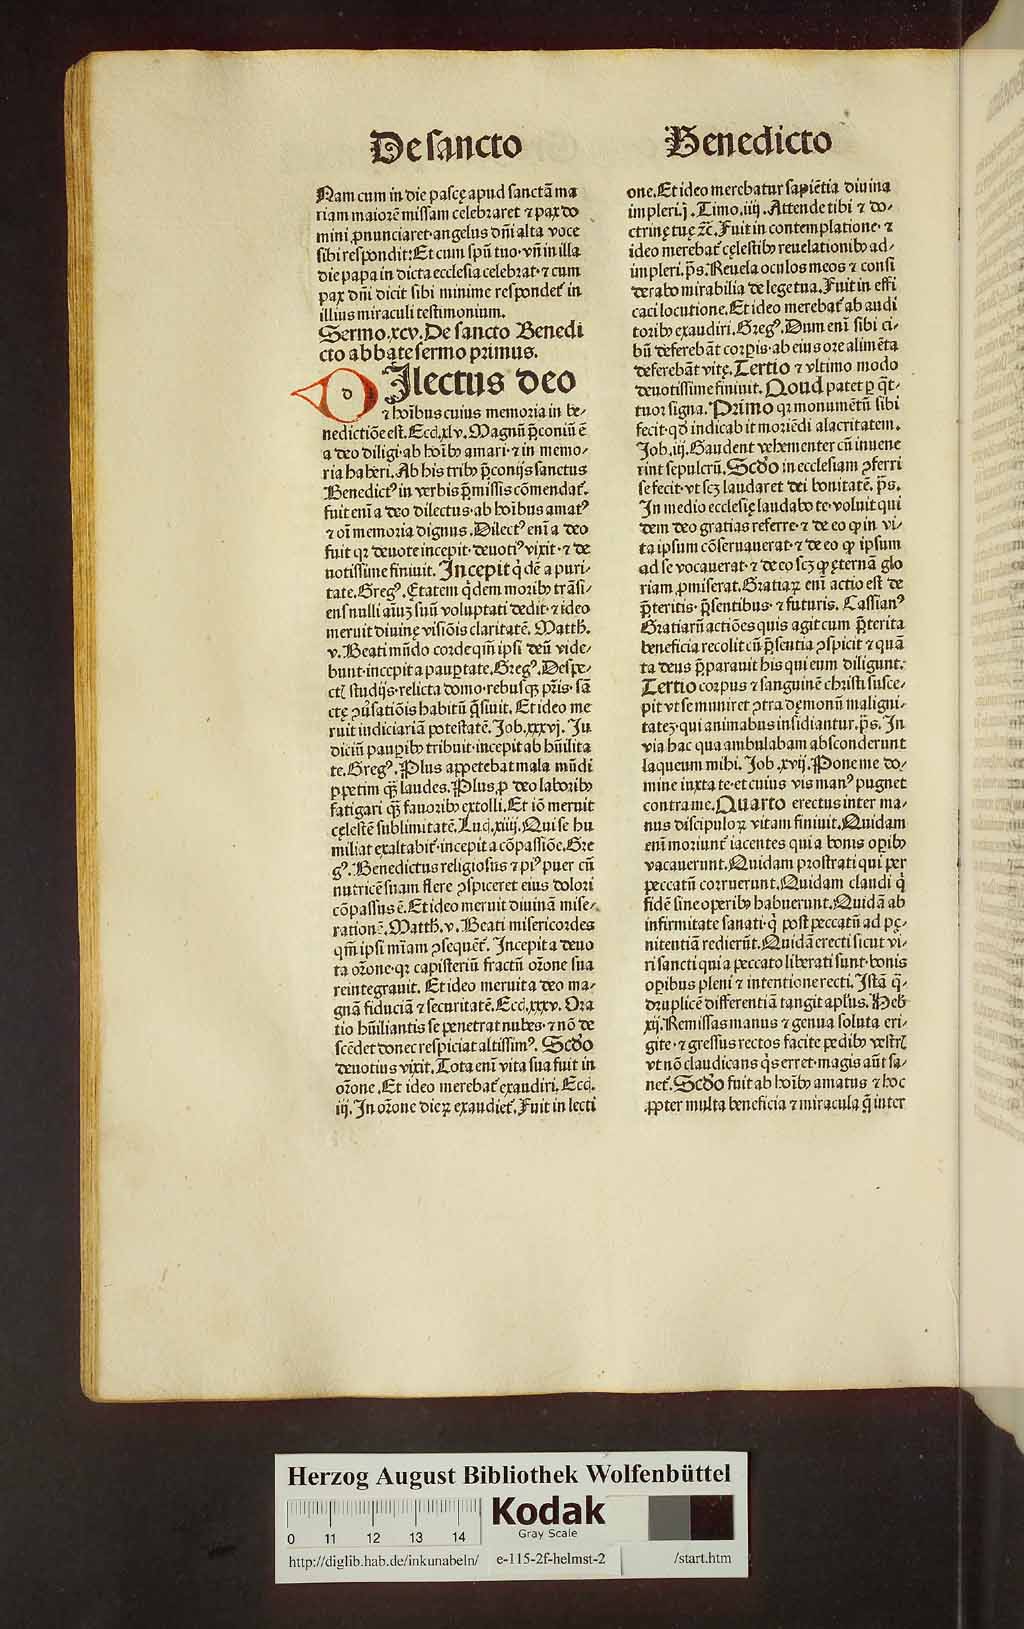 De sancto Benedicto
Nam cum in die pascę apud sanctā ma
riam maiorē missam celebraret ⁊ pax do
mini ꝓnunciaret·angelus dñi alta voce
sibi respondit:Et cum spū tuo·vñ in illa
die papa in dicta ecclesia celebrat·⁊ cum
pax dñi dicit sibi minime respondet᷑ in
illius miraculi testimonium.
Sermo.xcv.De sancto Benedi
cto abbate sermo primus.
DJlectus deo
⁊ hoībus cuius memoria in be⸗
nedictiōe est.Eccī.xlv.Magnū p̄coniū ē
a deo diligi·ab hoībꝰ amari·⁊ in memo⸗
ria haberi.Ab his tribꝰ p̄conijs sanctus
Benedictꝰ in verbis p̄missis cōmendat᷑.
fuit enī a deo dilectus·ab hoībus amatꝰ
⁊ oī memoria dignus.Dilectꝰ enī a deo
fuit qꝛ deuote incepit·deuotiꝰ vixit·⁊ de
uotissime finiuit.Jncepit q̇dē a puri⸗
tate.Gregꝰ.Ętatem q̇dem moribꝰ trāsi⸗
ens nulli aīuꝫ suū voluptati dedit·⁊ ideo
meruit diuinę visiōis claritatē.Matth̄.
v.Beati mūdo corde qm̄ ipsi deū vide⸗
bunt·incepit a paup̲tate.Gregꝰ.Despe⸗
ctꝭ studijs·relicta domo·rebusqꝫ pr̄is·sā
ctę ꝯūsatiōis habitū q̄siuit.Et ideo me
ruit iudiciariā potestatē.Job.xxxvj.Ju
diciū paup̲ibꝰ tribuit·incepit ab hūilita
te.Gregꝰ.Plus appetebat mala mūdi
p̲petim qꝫ̄ laudes.Plus p̲ deo laboribꝰ
fatigari qꝫ̄ fauoribꝰ extolli.Et iō meruit
cęlestē sublimitatē.Lucī.xiiij.Qui se hu
miliat exaltabit᷑·incepit a cōpassiōe.Gre
gꝰ.Benedictus religiosus ⁊ piꝰ puer cū
nutricē suam flere ꝯspiceret eius dolori
cōpassus ē.Et ideo meruit diuinā mise⸗
rationē.Matth̄.v.Beati misericordes
qm̄ ipsi mīam ꝯsequent᷑.Jncepit a deuo
ta or̄one·qꝛ capisteriū fractū or̄one sua
reintegrauit.Et ideo meruit a deo ma⸗
gnā fiduciā ⁊ securitatē.Eccī.xxxv.Ora
tio hūiliantis se penetrat nubes·⁊ nō de
scēdet donec respiciat altissimꝰ.Scd̄o
deuotius vixit.Tota enī vita sua fuit in
or̄one.Et ideo merebat᷑ exaudiri.Eccī.
iij.Jn or̄one dieꝝ exaudiet᷑.Fuit in lecti
one.Et ideo merebatur sapiētia diuina
impleri.j.Timo.iiij.Attende tibi ⁊ do⸗
ctrinę tuę ⁊c̄.Fuit in contemplatione·⁊
ideo merebat᷑ cęlestibꝰ reuelationibꝰ ad⸗
impleri.p̄s.Reuela oculos meos ⁊ consi
derabo mirabilia de lege tua.Fuit in effi
caci locutione.Et ideo merebat᷑ ab audi
toribꝰ exaudiri.Gregꝰ.Dum enī sibi ci⸗
bū deferebāt corp̲is·ab eius ore alimēta
deferebāt vitę.Tertio ⁊ vltimo modo
deuotissime finiuit.Qoud patet p̲ q̄t⸗
tuor signa.Prīmo qꝛ monumētū sibi
fecit·qd̄ indicabit moriēdi alacritatem.
Job.iij.Gaudent vehementer cū inuene
rint sepulcrū.Scd̄o in ecclesiam ꝓferri
se fecit·vt scꝫ laudaret dei bonitatē.p̄s.
Jn medio ecclesię laudabo te·voluit qui
dem deo gratias referre·⁊ de eo ꝙ in vi⸗
ta ipsum cōseruauerat·⁊ de eo ꝙ ipsum
ad se vocauerat·⁊ de eo scꝫ ꝙ ęternā glo
riam ꝓmiserat.Gratiaꝝ enī actio est de
p̄teritis·p̄sentibus·⁊ futuris.Cassianꝰ
Gratiarū actiōes quis agit cum p̄terita
beneficia recolit cū p̄sentia ꝯspicit ⁊ quā
ta deus p̄parauit his qui eum diligunt:
Tertio corpus ⁊ sanguinē christi susce⸗
pit vt se muniret ꝯtra dęmonū maligni⸗
tateꝫ·qui animabus insidiantur.p̄s.Jn
via hac qua ambulabam absconderunt
laqueum mihi.Job.xvij.Pone me do⸗
mine iuxta te·et cuius vis manꝰ pugnet
contra me.Quarto erectus inter ma⸗
nus discipuloꝝ vitam finiuit.Quidam
enī moriunt᷑ iacentes qui a bonis op̲ibꝰ
vacauerunt.Quidam prostrati qui per
peccatū corruerunt.Quidam claudi q̇
fidē sine operibꝰ habuerunt.Quidā ab
infirmitate sanati·q̇ post peccatū ad pę⸗
nitentiā redierūt.Quidā erecti sicut vi⸗
ri sancti qui a peccato liberati sunt·bonis
op̲ibus pleni ⁊ intentione recti.Jstā q̄⸗
druplicē differentiā tangit apl̄us.Heb̄
xij.Remissas manus ⁊ genua soluta eri⸗
gite·⁊ gressus rectos facite pedibꝰ vestrꝭ
vt nō claudicans q̇s erret·magis aūt sa⸗
net᷑.Scd̄o fuit ab hoībꝰ amatus ⁊ hoc
ꝓpter multa beneficia ⁊ miracula q̄ inter
Herzog August Bibliothek Wolfenbüttel
Kodak
Gray Scale
0 11 12 13 14
http://diglib.hab.de/inkunabeln/ e-115-2f-helmst-2 /start.htm